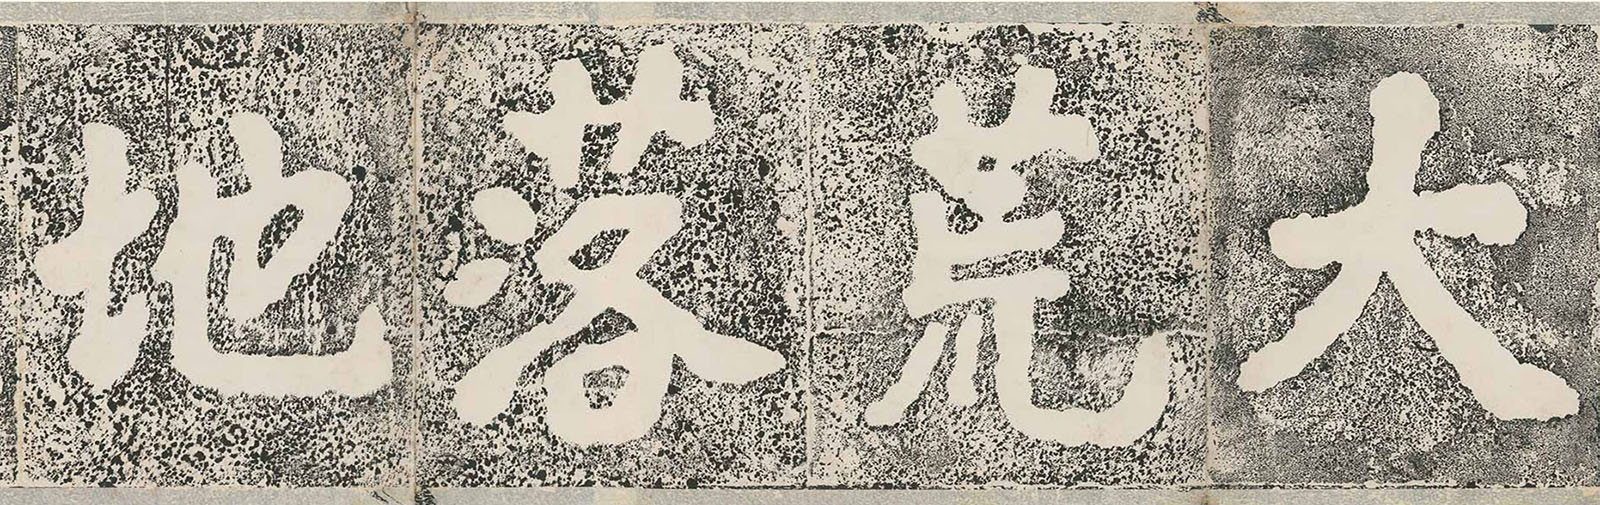 大荒落地